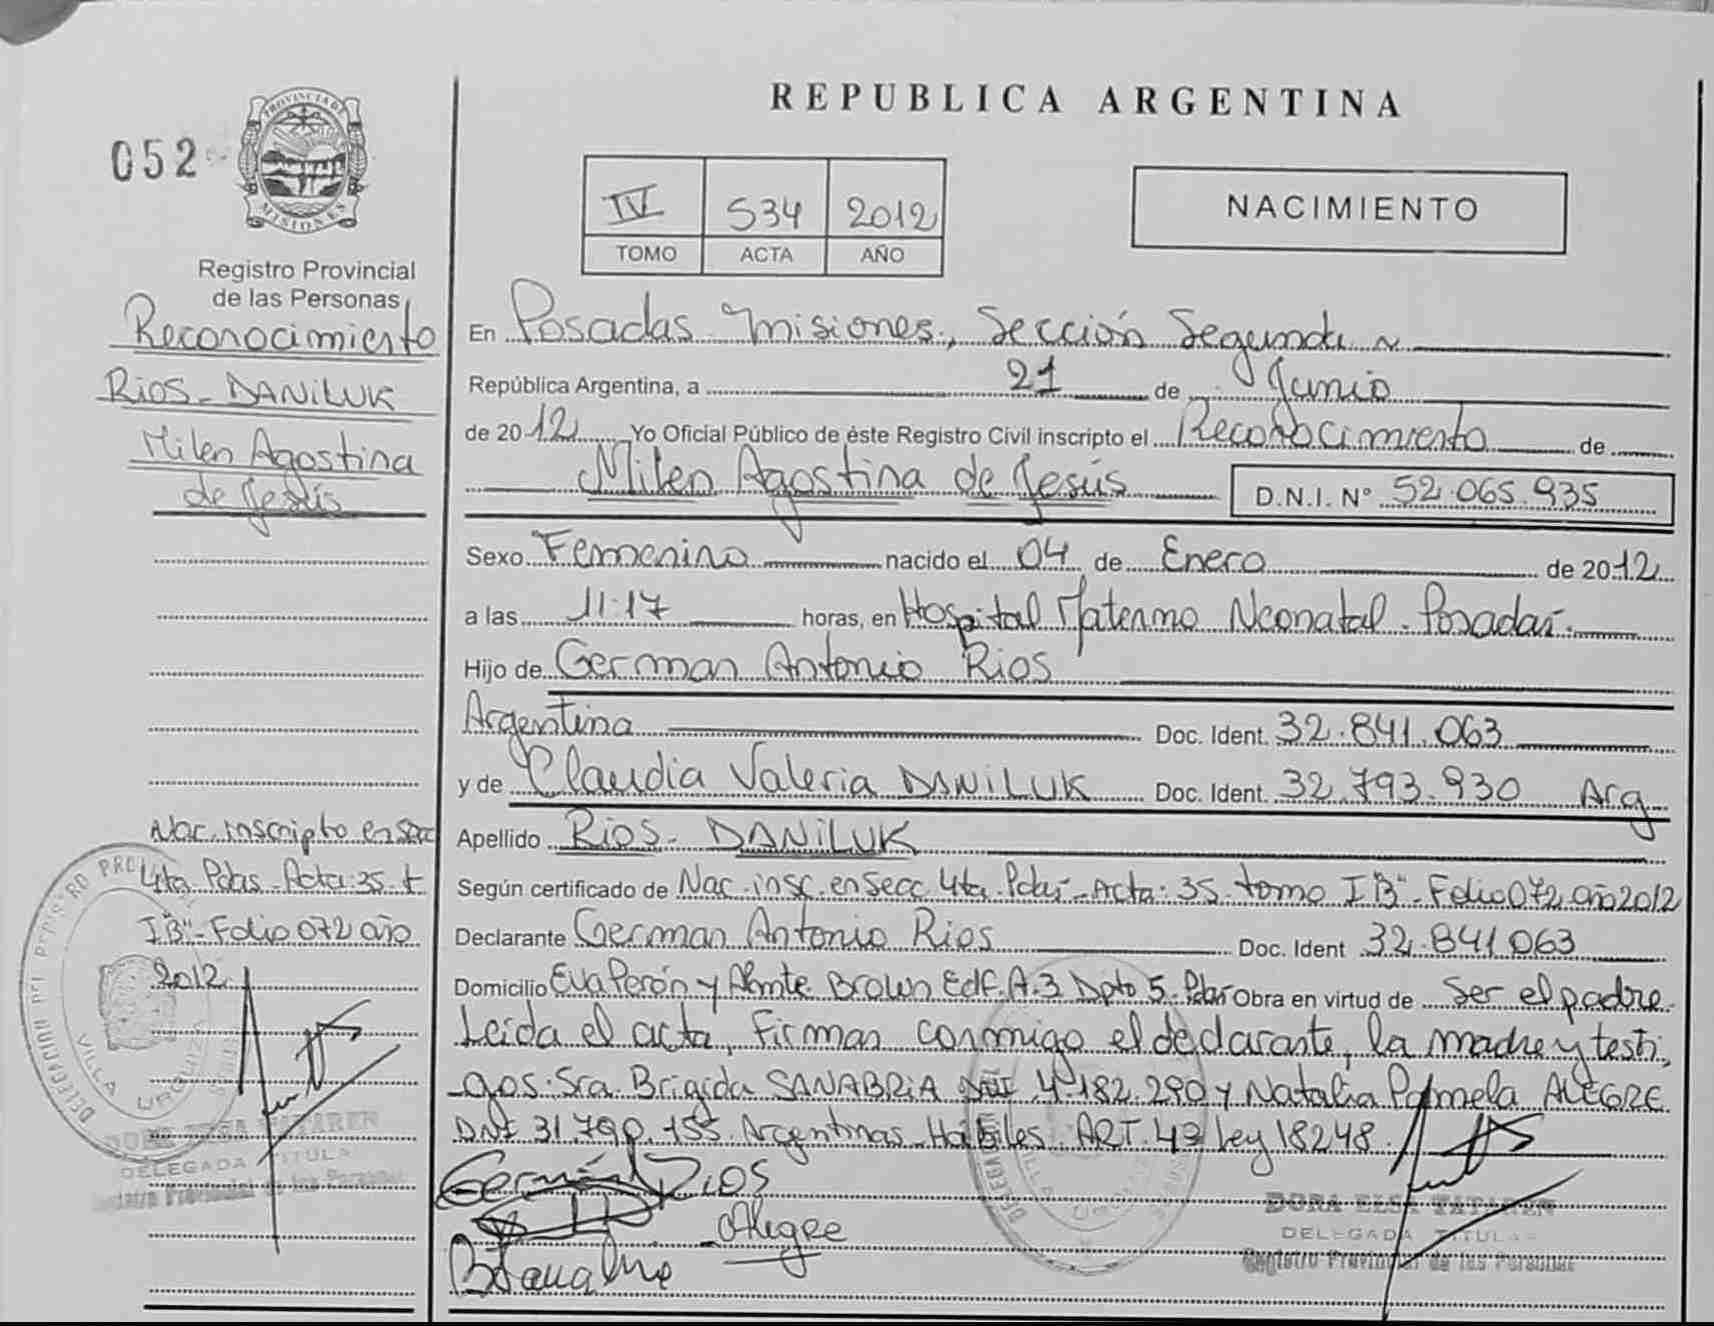 REPUBLICA ARGENTINA
052
PROVINCIA DE
MISIONES
Registro Provincial
de las Personas
Reconocimiento
RIOS - DANILUK
Milen Agostina
de Jesús
Nac. inscripto en Secc
4ta Pdas - Acta 35 t
I"B" - Folio 072 año
2012
VILLA URQUIZA
DORA ELSA TATAREN
DELEGADA TITULAR
Registro Provincial de las Personas
IV 534 2012
TOMO ACTA AÑO
NACIMIENTO
En Posadas Misiones, Sección Segunda
República Argentina, a 21 de Junio
de 2012 Yo Oficial Público de éste Registro Civil inscripto el Reconocimiento de
Milen Agostina de Jesús D.N.I. Nº 52.065.935
Sexo Femenino nacido el 04 de Enero de 2012
a las 11:17 horas, en Hospital Materno Neonatal - Posadas
Hijo de German Antonio Rios
Argentina Doc. Ident. 32.841.063
y de Claudia Valeria DANILUK Doc. Ident. 32.793.930 Arg
Apellido RIOS - DANILUK
Según certificado de Nac. insc. en Secc 4ta. Pdas - Acta: 35 tomo I"B" - Folio 072 año 2012
Declarante German Antonio Rios Doc. Ident 32.841.063
Domicilio Eva Perón y Almte Brown Edf. A.3 Dpto 5 - Pdas Obra en virtud de Ser el padre.
Leída el acta, firman conmigo el declarante, la madre y testi,
gos: Sra. Brigida SANABRIA DNI 4.182.290 y Natalia Pamela ALEGRE
DNI 31.790.155. Argentinas Hábiles. ART. 43 Ley 18248.
Germán Rios
Alegre
DORA ELSA TATAREN
DELEGADA TITULAR
Registro Provincial de las Personas